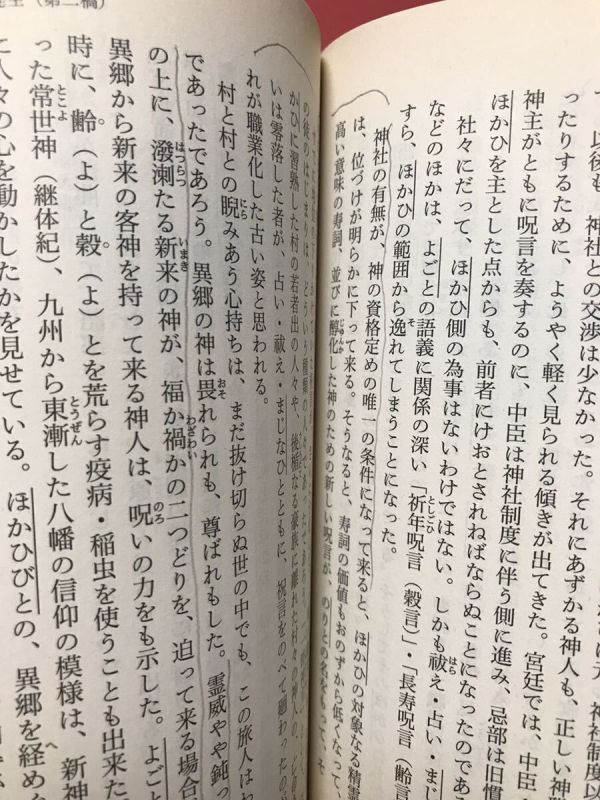 以後も、神社との交渉は少なかった。それにあずかる神人も、正しい神
ったりするために、ようやく軽く見られる傾きが出てきた。宮廷では、中臣
神主がともに呪言を奏するのに、中臣は神社制度に伴う側に進み、忌部は旧慣
ほかひを主とした点からも、前者にけおとされねばならぬことになったのであ
社々にだって、ほかひ側の為事はないわけではない。しかも祓え・占い・まじ
などのほかは、よごとの語義に関係の深い「祈年呪言（穀言）」・「長寿呪言（齢言
すら、ほかひの範囲から逸れてしまうことになった。
神社の有無が、神の資格定めの唯一の条件になって来ると、ほかひの対象なる精霊
は、位づけが明らかに下って来る。そうなると、寿詞の価値もおのずから低くなって、
高い意味の寿詞、並びに醇化した神のための新しい呪言が、のりとの名をもって、そ
（第二稿）
かひに習熟した村の若者出の人々や、後楯なる豪族に離れた村々の神人の
いは零落した者が、占い・祓え・まじなひとともに、祝言をのべて廻わった
れが職業化した古い姿と思われる。
村と村との睨みあう心持ちは、まだ抜け切らぬ世の中でも、この旅人はわ
であったであろう。異郷の神は畏れられも、尊ばれもした。霊威やや鈍っ
の上に、潑溂たる新来の神が、福か禍かの二つどりを、迫って来る場合
異郷から新来の客神を持って来る神人は、呪いの力をも示した。よごと
時に、齢（よ）と穀（よ）とを荒らす疫病・稲虫を使うことも出来た
った常世神（継体紀）、九州から東漸した八幡の信仰の模様は、新神
に人々の心を動かしたかを見せている。ほかひびとの、異郷を経め